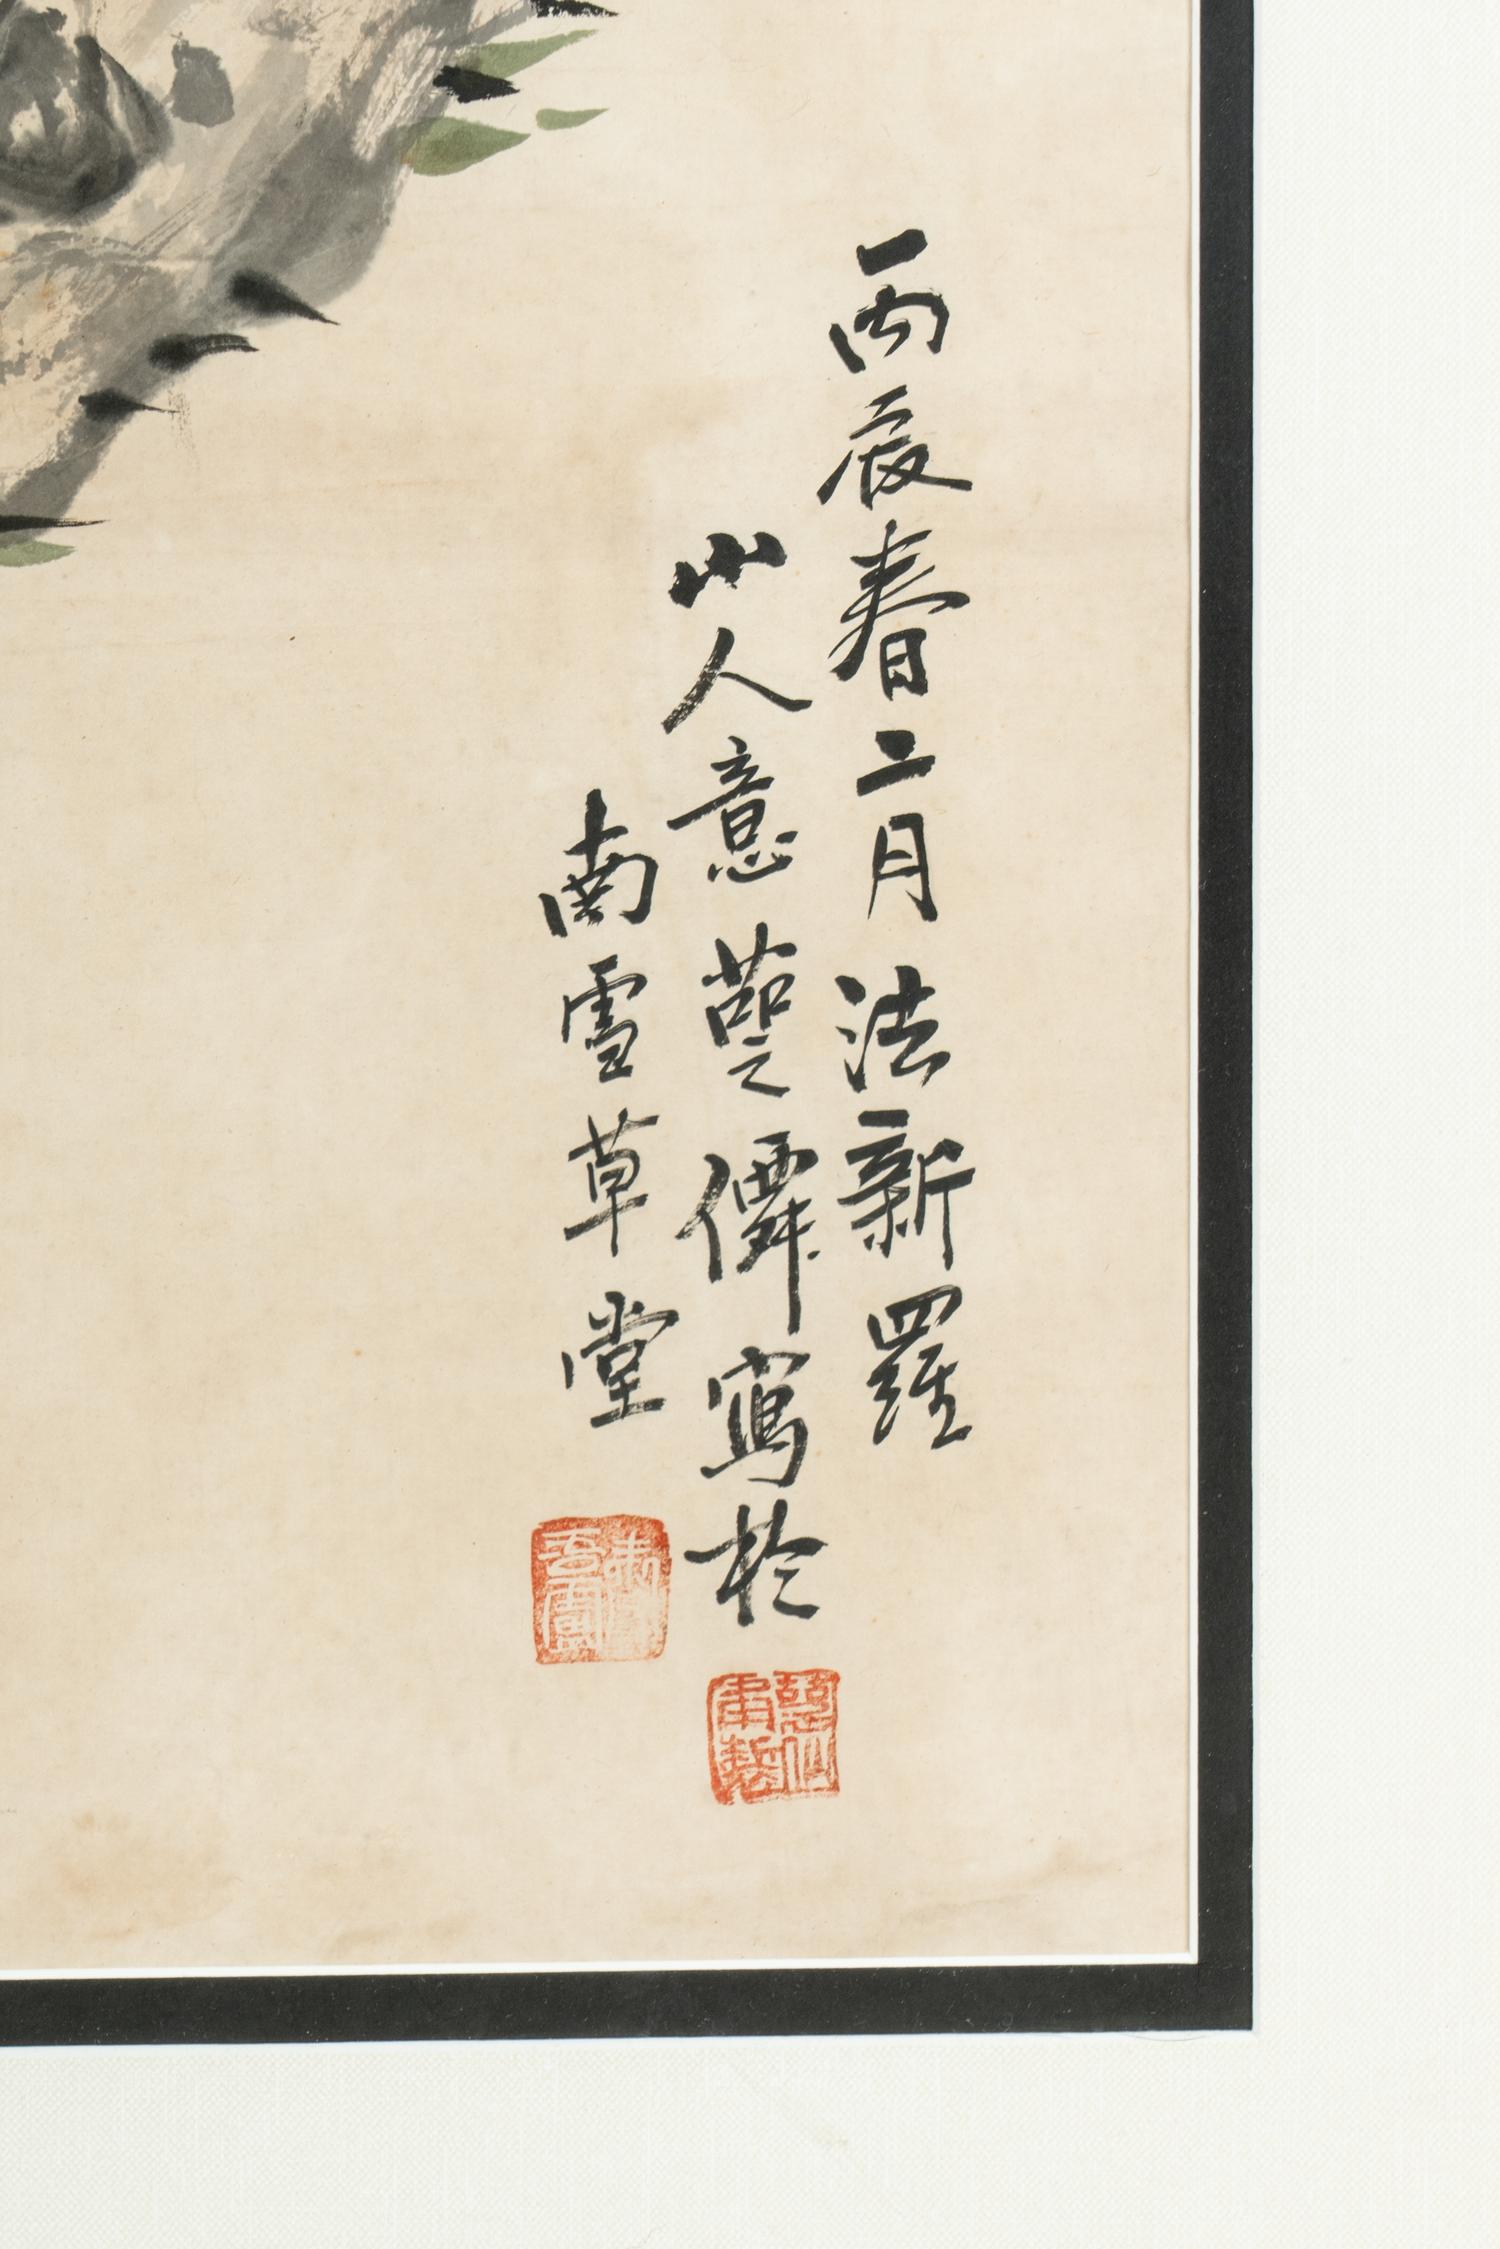 丙辰春二月法新羅
山人意僊寫於
南雪草堂